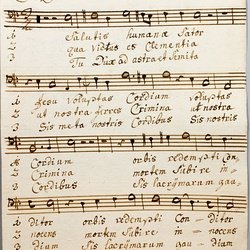 1 Salutis humanæ Sator
2 qua victus es Clementia
3 Tu Dux ad astra et Semita
1 Jesu voluptas Cordium voluptas
2 ut nostra ferres Crimina ut nostra
3 Sis meta nostris Cordibus Sis
1 Cordium orbis redempti Con,
2 Crimina mortem subire in-
3 Cordibus Sis lacrymarum gau,
1 Ditor orbis redempti Con - -
2 nocens mortem Subire in - -
3 dium Sis lacrymarum gau - -